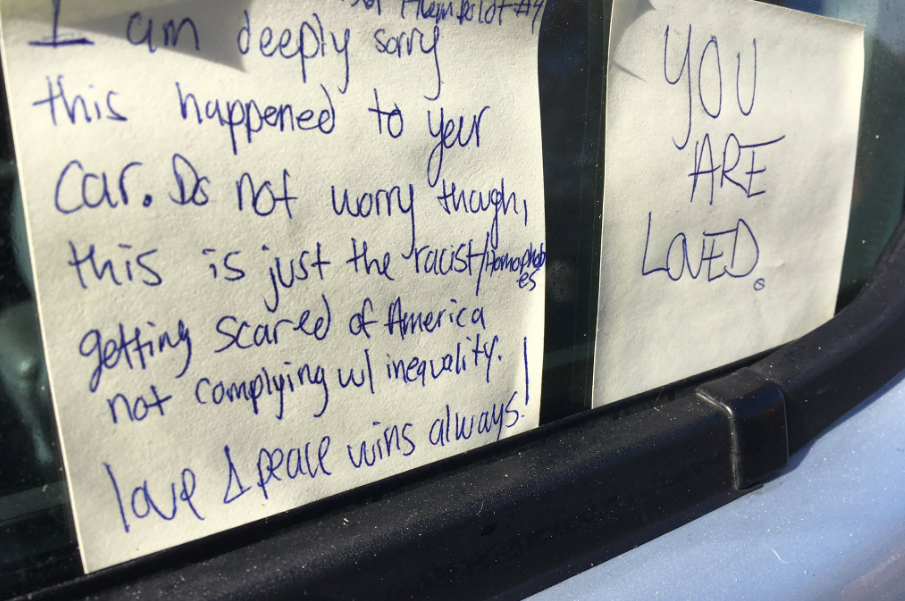 Humboldt #4
I am deeply sorry
this happened to your
car. Do not worry though,
this is just the racist/Homophob
es
getting scared of America
not complying w/ inequality.
love & peace wins always!
YOU
ARE
LOVED.